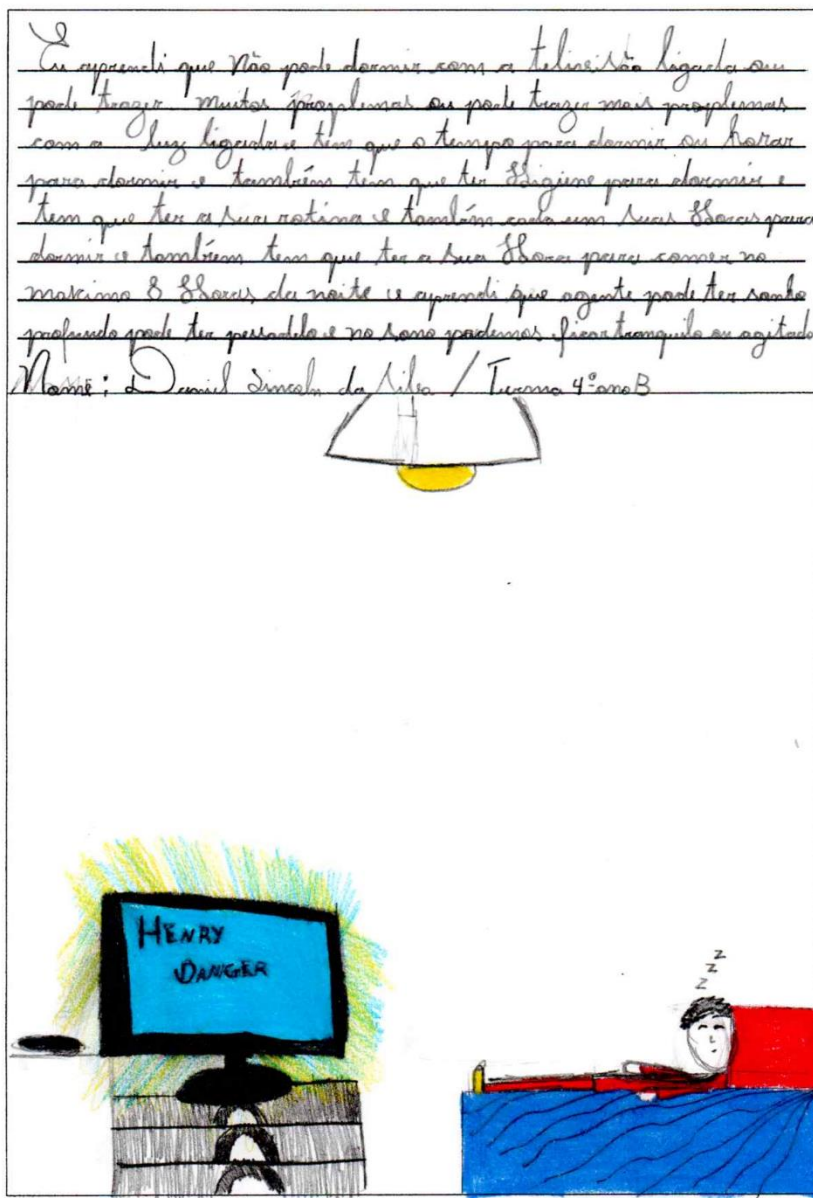 Eu aprendi que não pode dormir com a televisão ligada ou
pode trazer muitos proplemas ou pode trazer mais proplemas
com a luz ligada e tem que o tempo para dormir ou horar
para dormir e também tem que ter Higiene para dormir e
tem que ter a sua rotina e também cada um suas Horas para
dormir e também tem que ter a sua Hora para comer no
maximo 8 Horas da noite e aprendi que agente pode ter sonho
profundo pode ter pessadelo e no sono podemos ficar tranquilo ou agitado
Nome: Daniel Lincoln da Silva / Turma 4º ano B
HENRY
DANGER
z
z
z